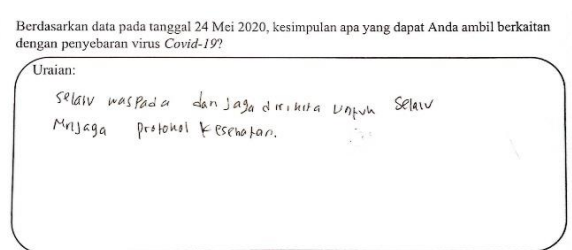 Berdasarkan data pada tanggal 24 Mei 2020, kesimpulan apa yang dapat Anda ambil berkaitan
dengan penyebaran virus Covid-19?
Uraian:
Selalu waspada dan jaga diri kita untuk selalu
Mnjaga protokol kesehatan.